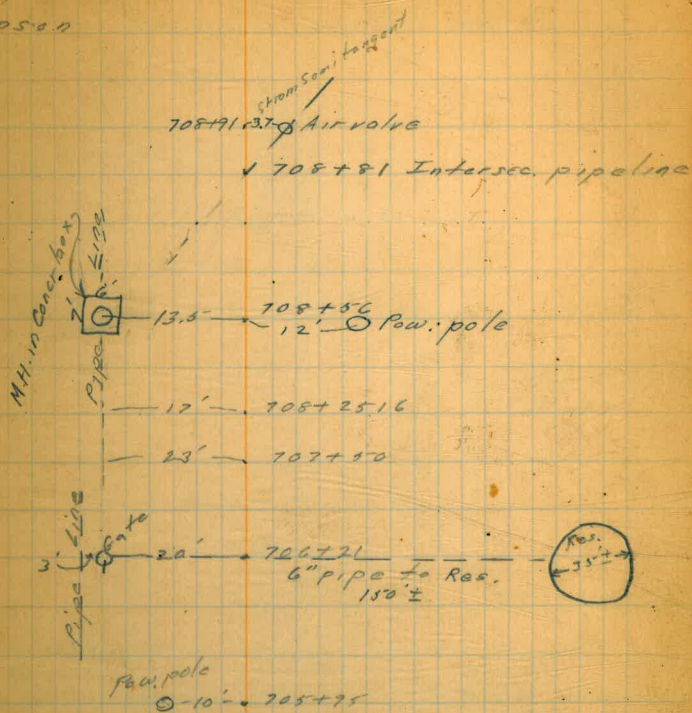 tangent
708+91 3.7 Air valve
708+81 Intersec. pipeline
M.H. in Concr. box
7'
6'
Pipe Line
13.5
708+56
12' Pow. pole
17' 708+2516
23' 707+50
Pipe Line
3'
Gate
20' 706+21
6" pipe to Res.
150'±
Res.
35'±
Pow. pole
10' 705+95